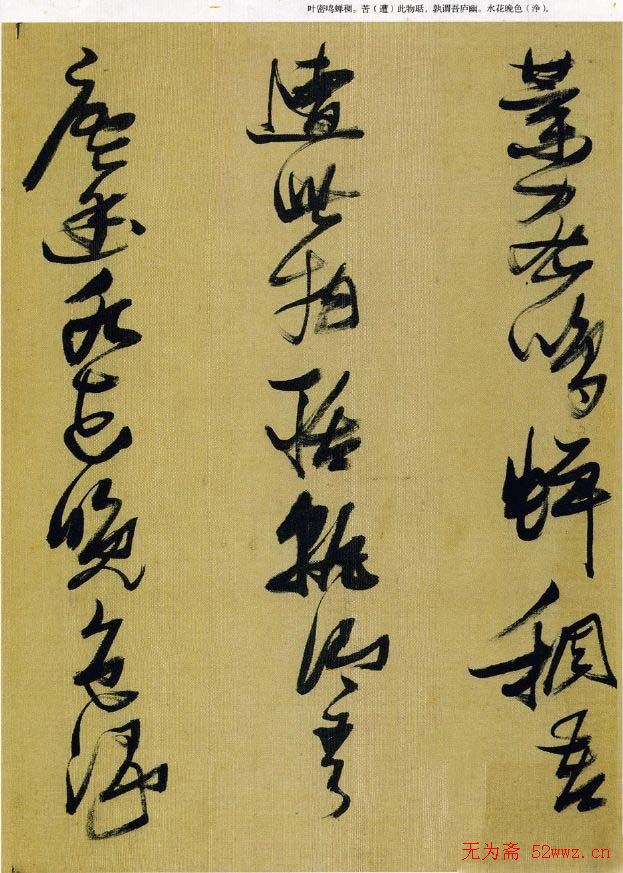 叶密鸣蝉稠。苦（遭）此物聒，孰谓吾庐幽。水花晚色（净），
葉密鳴蟬稠苦
遭此物聒孰謂吾
廬幽水花晚色淨
无为斋 52wwz.cn